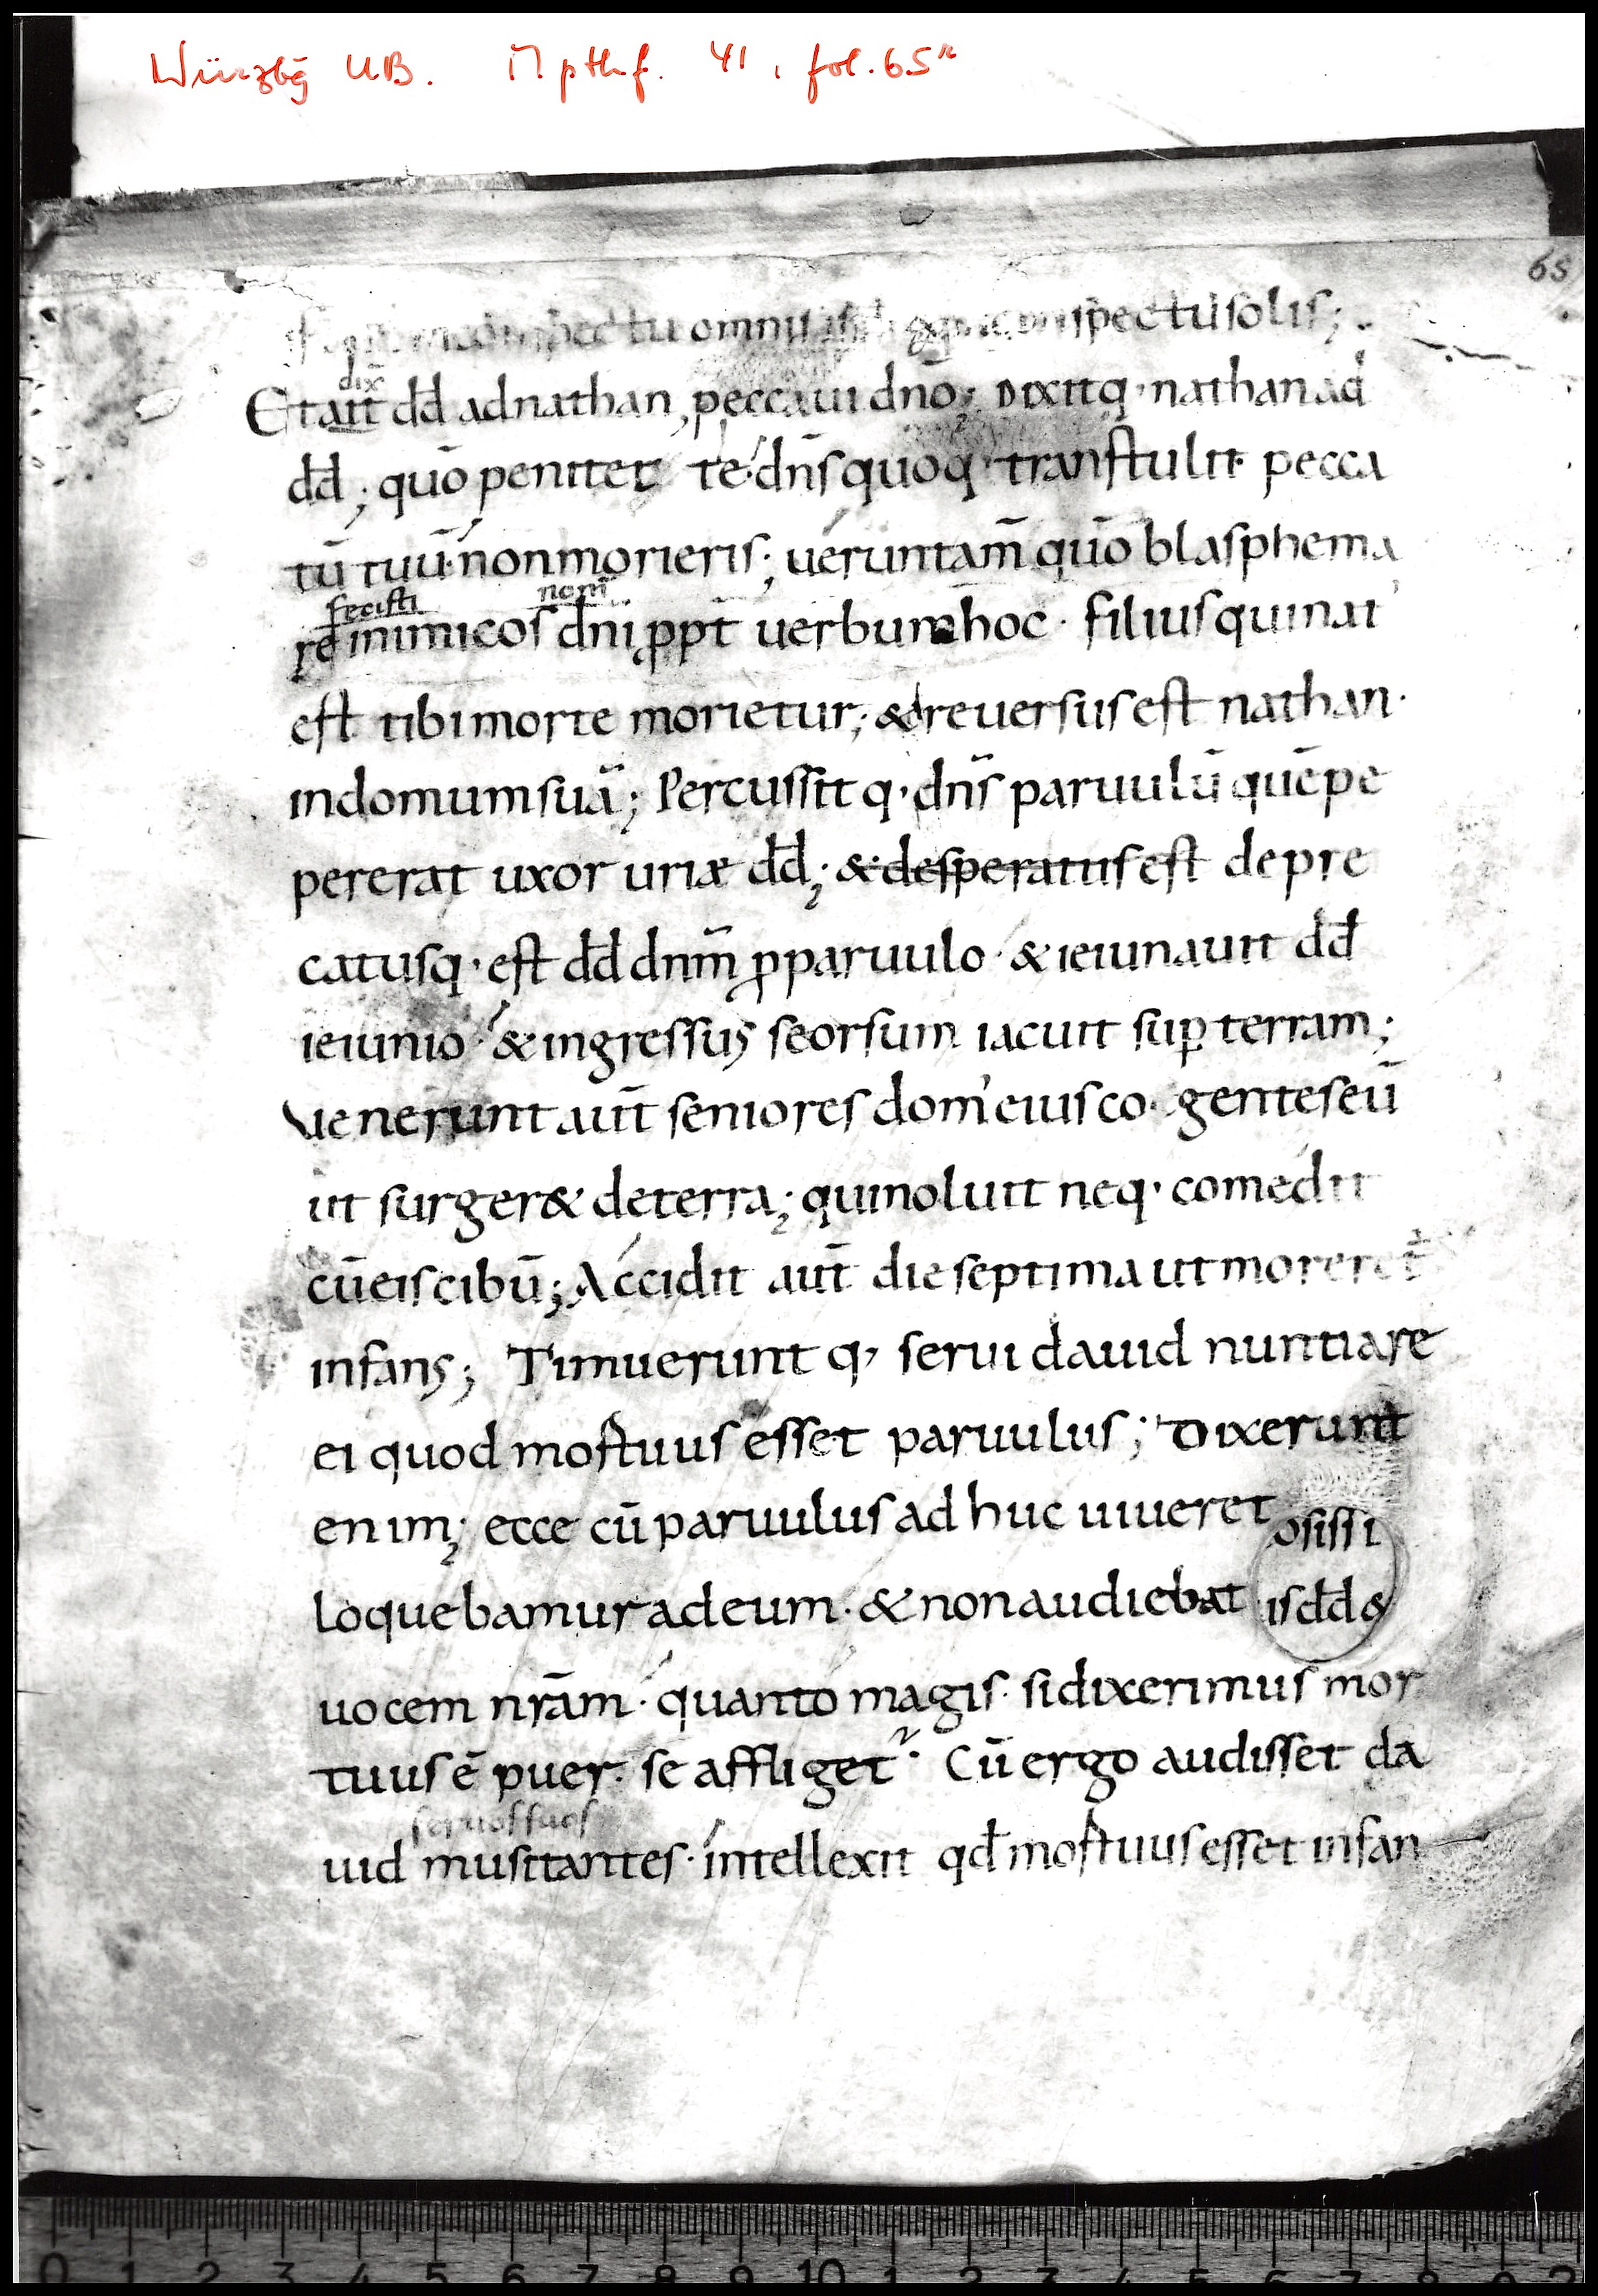 Würzbg UB. M p th f. 41, fol. 65r
65
conspectu omnis conspectū solis;
dix̄
Et ait dd̄ ad nathan, peccaui dnō; Dixitq· nathan ad
dd̄; quō penitet te· dn̄s quoq· transtulit pecca
tū tuū· non morieris; ueruntam̄ quō blasphema
fecisti nom̄
re inimicos dn̄i ꝓpt̄ uerbum hoc· filius qui nat'
est tibi morte morietur; & reuersus est nathan·
in domum suā; Percussitq· dn̄s paruulū quē pe
pererat uxor uriæ dd̄; & desperatus est depre
catusq· est dd̄ dnm̄ ꝓ paruulo· & ieiunauit dd̄
ieiunio· & ingressus seorsum iacuit suꝑ terram;
Uenerunt aut̄ seniores dom' eius co gentes eū
ut surger& de terra; qui noluit neq· comedit
cū eis cibū; Accidit aut̄ die septima ut moreret᷑
infans; Timueruntq· serui dauid nuntiare
ei quod mortuus esset paruulus; Dixerunt
enim; ecce cū paruulus adhuc uiueret
osissi
loquebamur ad eum· & non audiebat
is dd̄ &
uocem nr̄am· quanto magis· si dixerimus mor
tuus ē puer· se affliget᷑· Cū ergo audisset da
seruos suos
uid musitantes· intellexit qd̄ mortuus esset infan
0 1 2 3 4 5 6 7 8 9 10 1 2 3 4 5 6 7 8 9